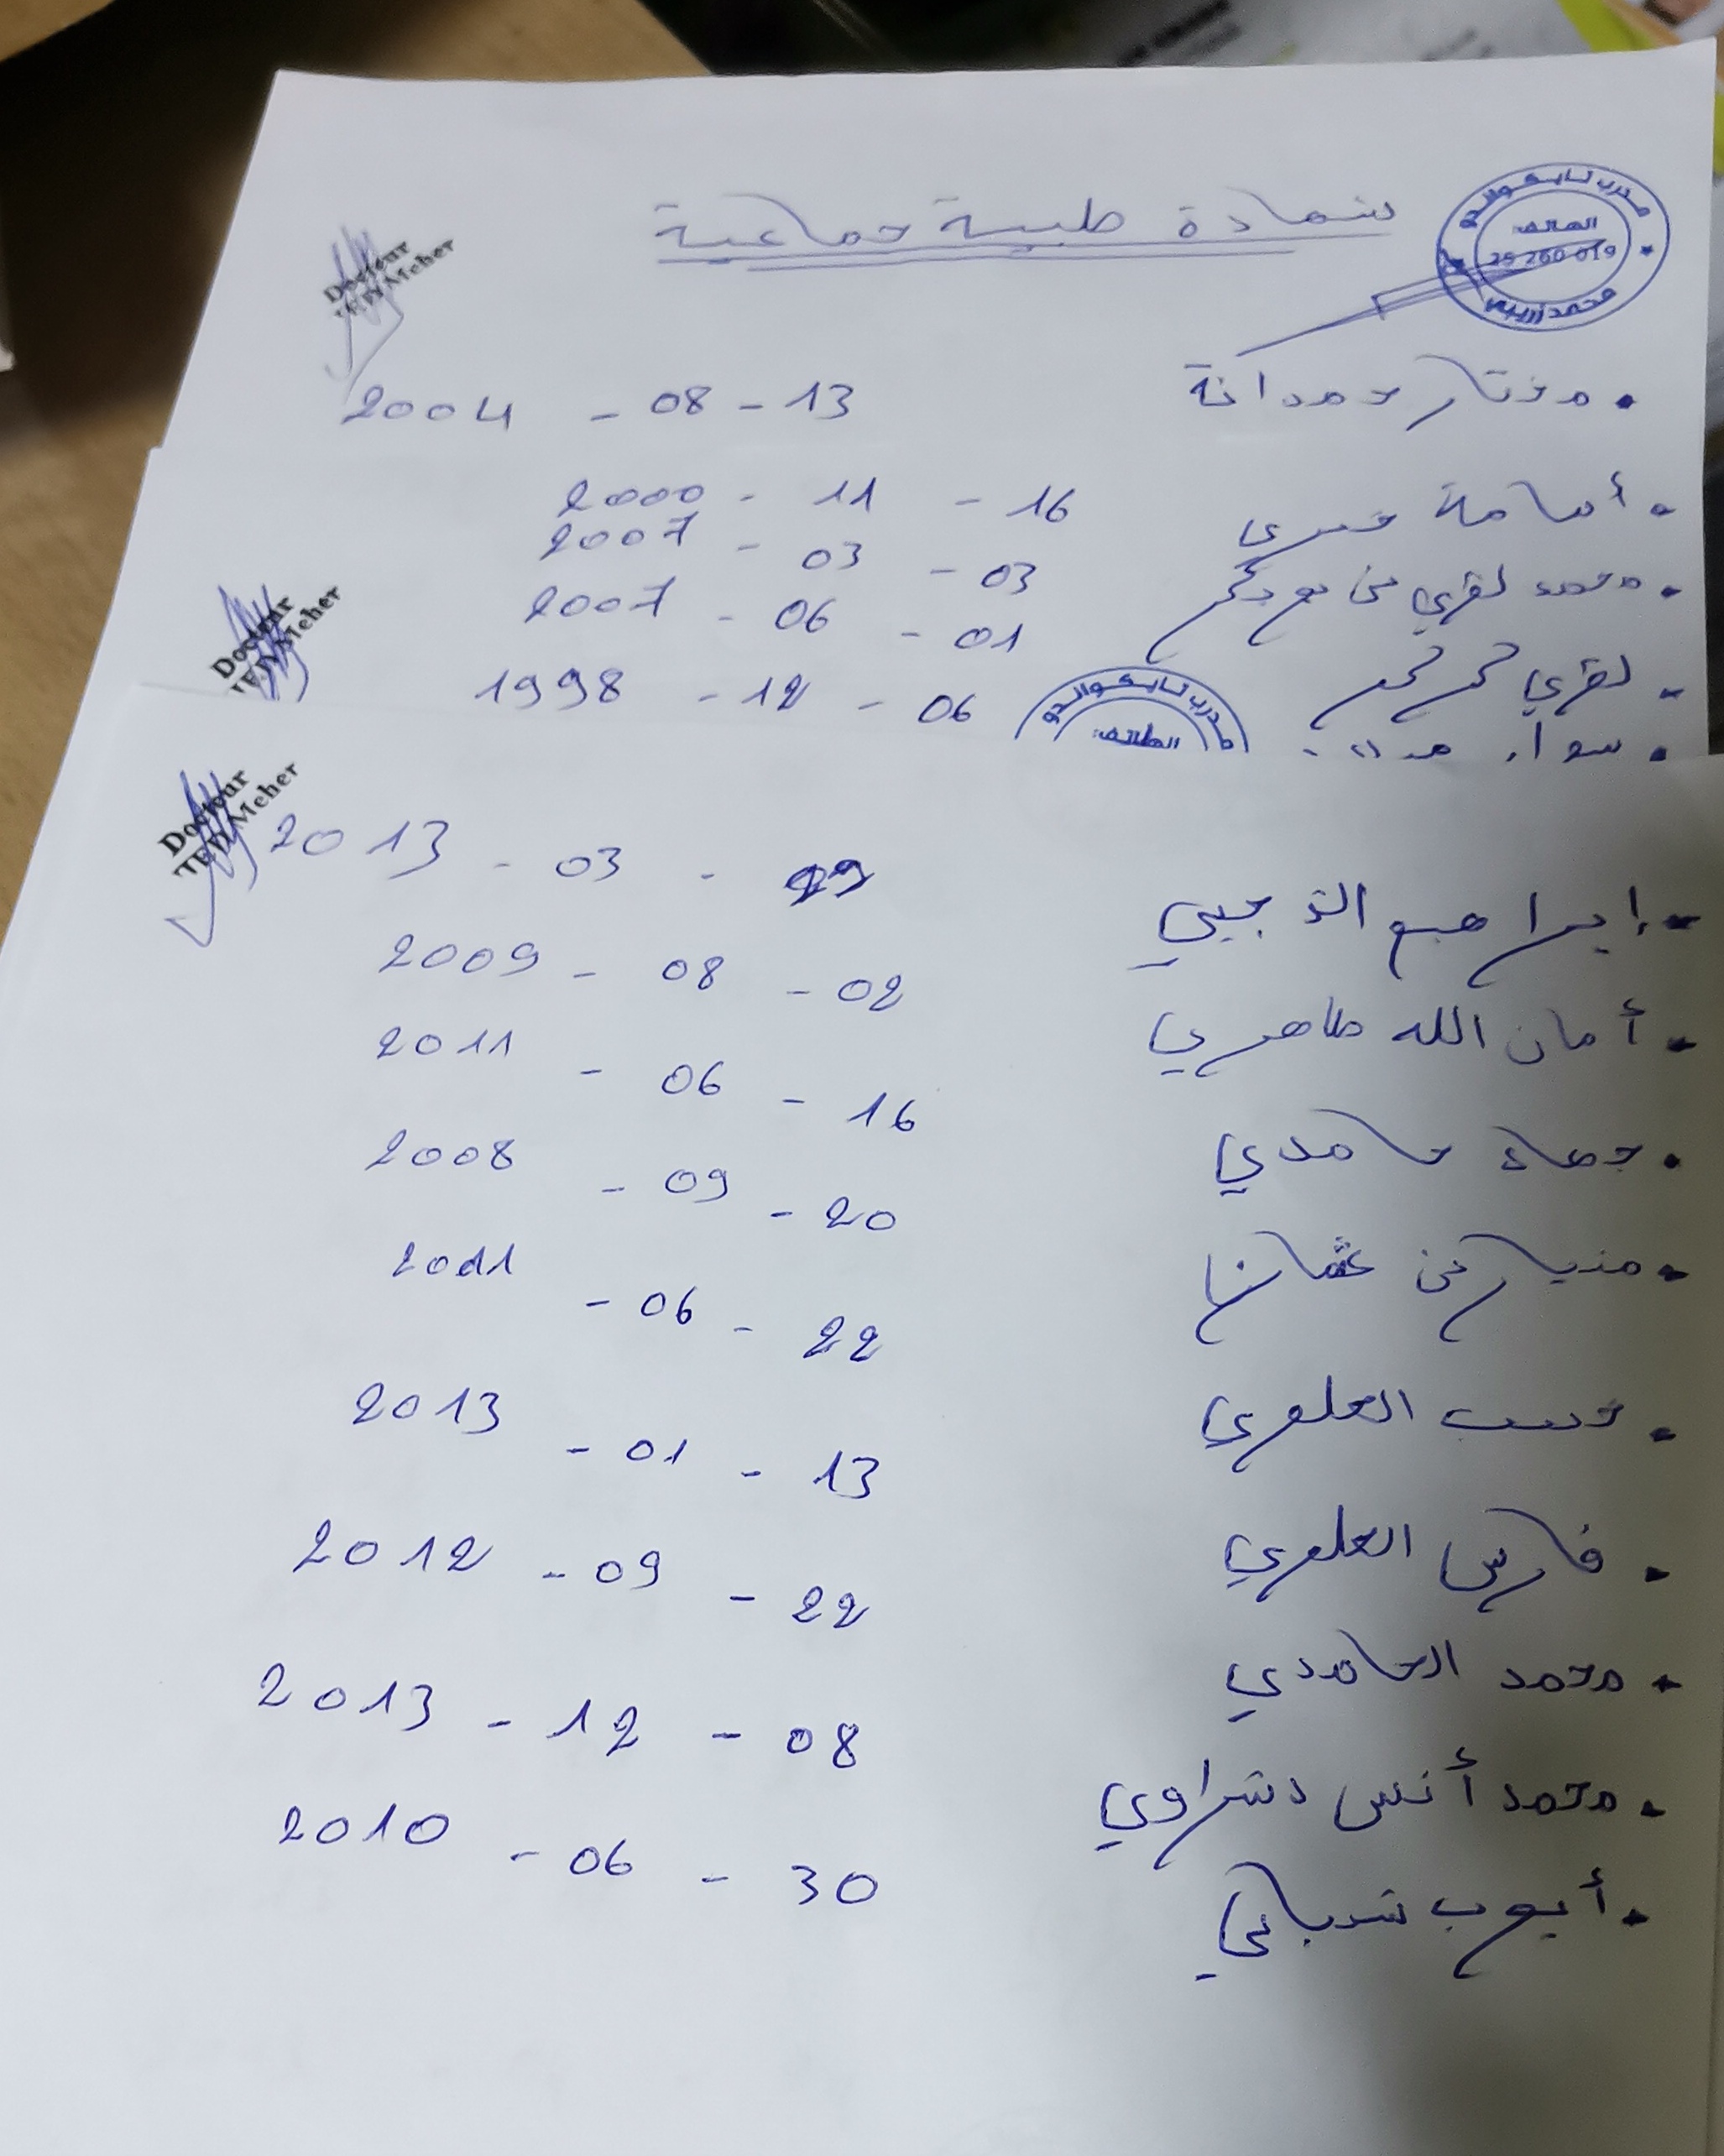 شهادة طبية جماعية
مدرب تايكواندو
الهاتف:
29 260 019
محمد زريبي
Docteur
Meher
• مختار حمدانة 13 - 08 - 2004
• أسامة خميري 16 - 11 - 2000
• محمد لقري 03 - 03 - 2007
• لقري 01 - 06 - 2007
06 - 12 - 1998
Docteur
Meher
مدرب تايكواندو
الهاتف:
Docteur
Meher
• إبراهيم 2013 - 03
• أمان الله طاهري 02 - 08 - 2009
• جهاد حامدي 16 - 06 - 2011
• بن عثمان 20 - 09 - 2008
• العلوي 22 - 06 - 2011
• فارس العلوي 13 - 01 - 2013
• محمد الحامدي 22 - 09 - 2012
• محمد أنس دشراوي 08 - 12 - 2013
• أيوب شرباني 30 - 06 - 2010